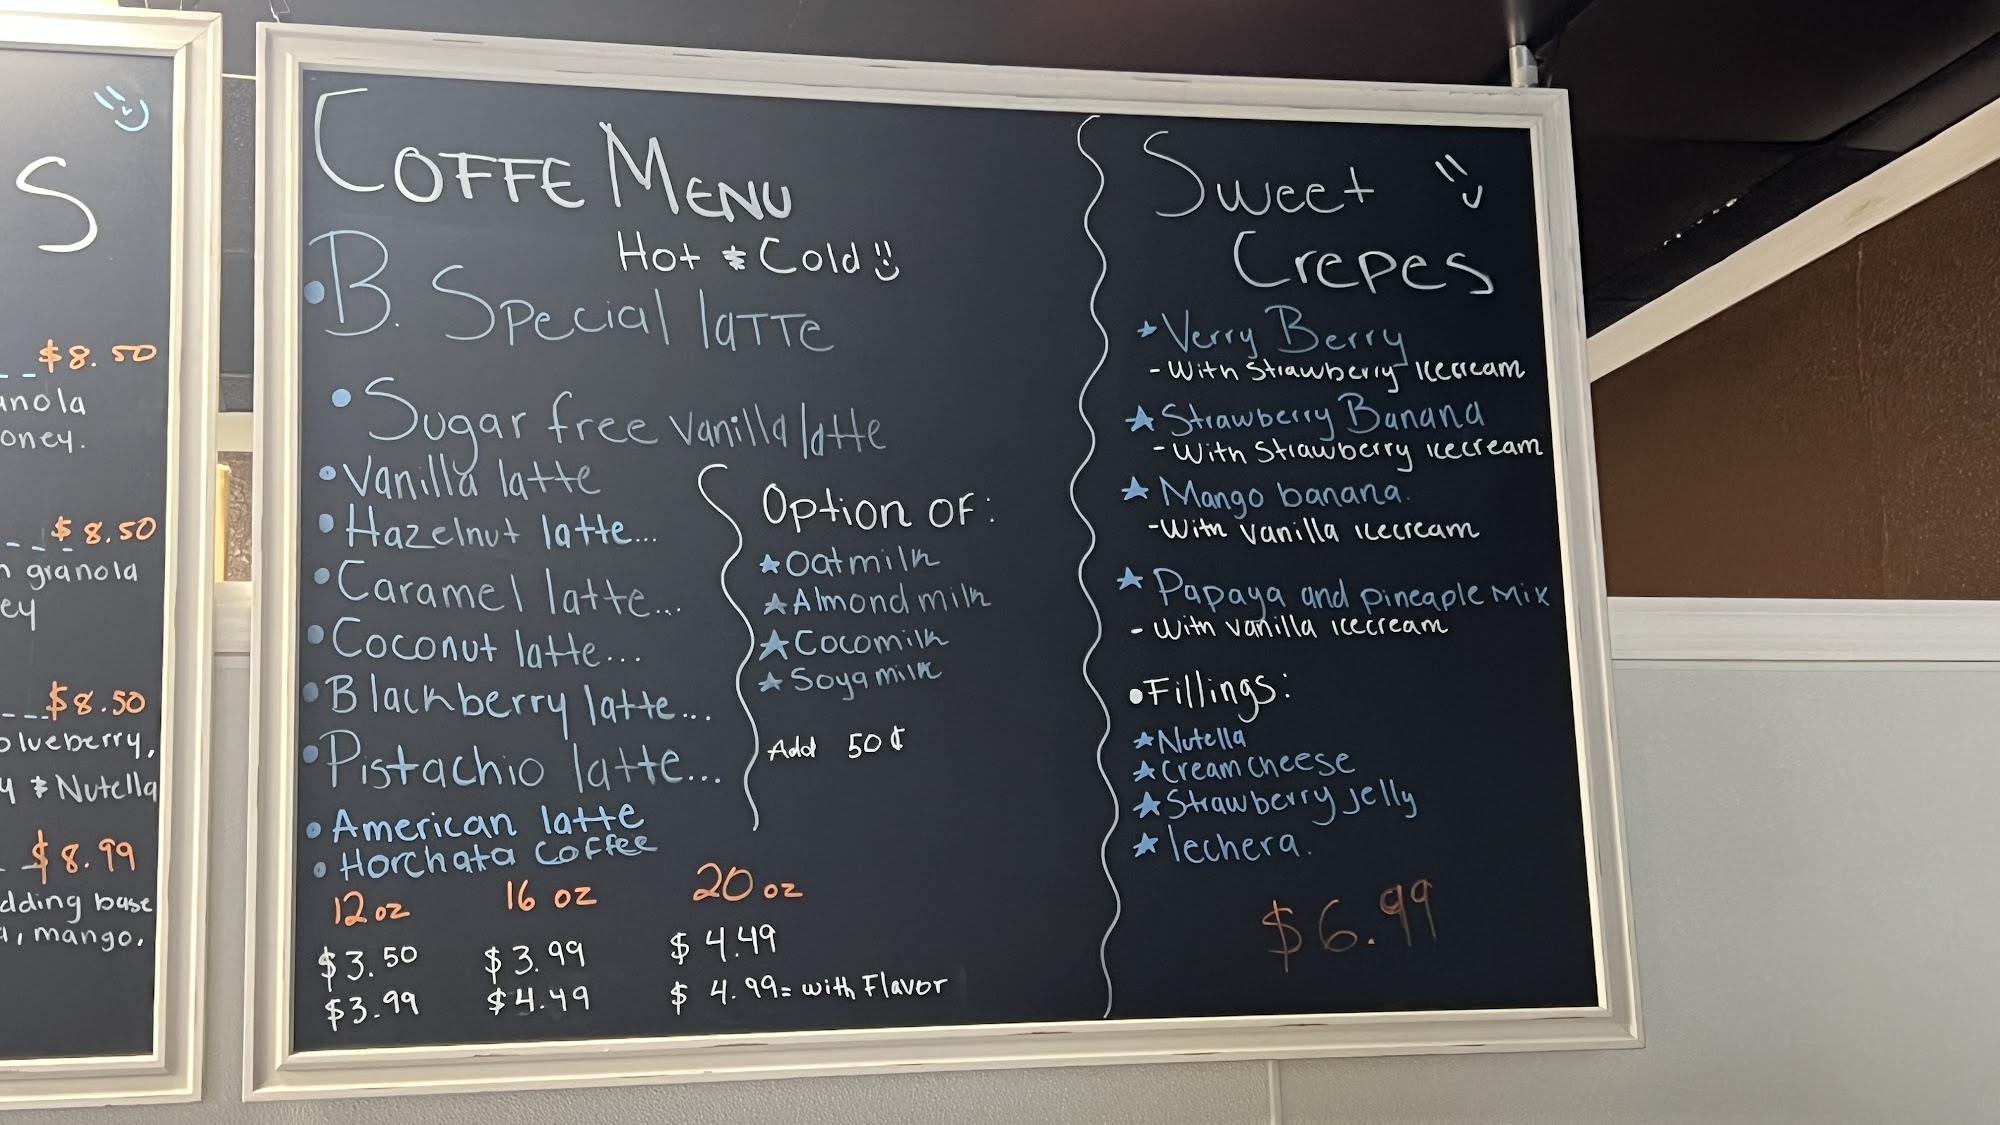 S
$8.50
anola
oney.
$8.50
granola
ey
$8.50
blueberry,
& Nutella
$8.99
dding base
, mango,
COFFE MENU
Hot & Cold
• B. Special latte
• Sugar free vanilla latte
• Vanilla latte
• Hazelnut latte...
• Caramel latte...
• Coconut latte...
• Blackberry latte...
• Pistachio latte...
• American latte
• Horchata Coffee
Option of:
★ Oatmilk
★ Almond milk
★ Cocomilk
★ Soya milk
Add 50¢
12 oz 16 oz 20 oz
$3.50 $3.99 $4.49
$3.99 $4.49 $4.99= with Flavor
Sweet
Crepes
★ Verry Berry
- With Strawberry icecream
★ Strawberry Banana
- With Strawberry icecream
★ Mango banana.
- With vanilla icecream
★ Papaya and pineaple Mix
- With vanilla icecream
• Fillings:
★ Nutella
★ Cream cheese
★ Strawberry jelly
★ lechera.
$6.99